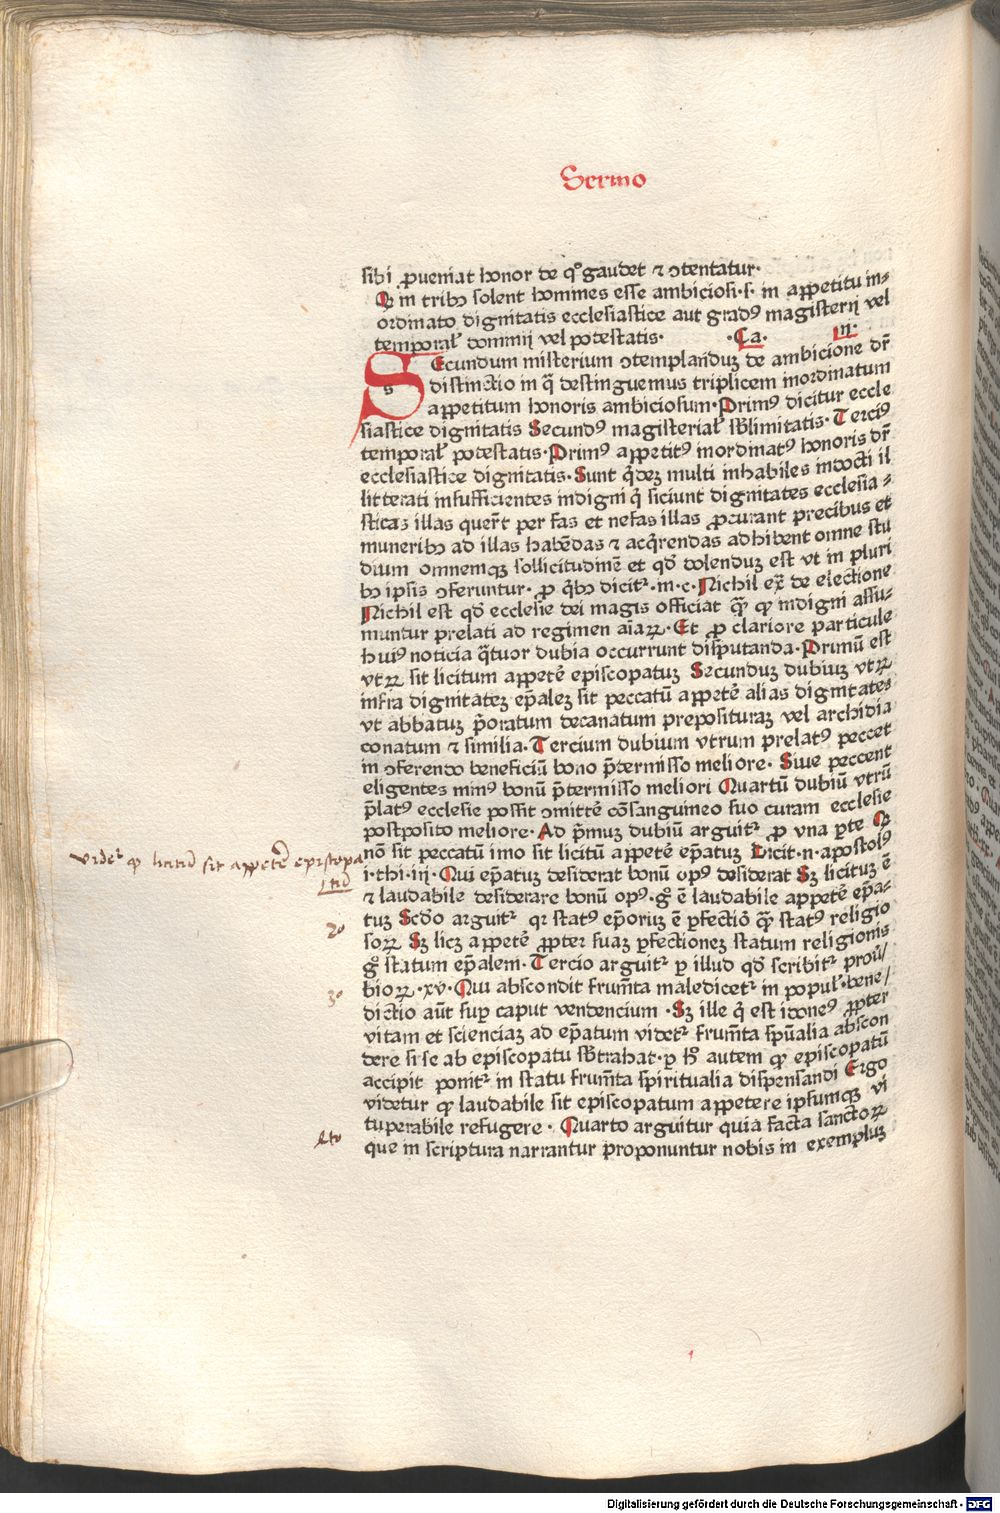 Sermo
sibi ꝓueniat honor de qͦ gaudet ⁊ ↄtentatur.
Q in tribꝫ solent homines esse ambiciosi.s. in appetitu in⸗
ordinato dignitatis ecclesiastice aut gradꝰ magisterij vel
temporal̓ dominij vel potestatis. .Ca. .ij.
SEcundum misterium ↄtemplanduꝫ de ambicione dr̄
distinctio in q̄ destinguemus triplicem inordinatum
appetitum honoris ambiciosum. Primꝰ dicitur eccle
siastice dignitatis Secundꝰ magisterial̓ sb̓limitatis. Terciꝰ
temporal̓ potestatis. Primꝰ appetitꝰ inordinatꝰ honoris dr̄
ecclesiastice dignitatis. Sunt q̄deꝫ multi inhabiles indocti il
litterati insufficientes indigni q̄ siciunt dignitates ecclesia⸗
sticas illas quer̄t per fas et nefas illas ꝓcurant precibus et
muneribꝫ ad illas habēdas ⁊ acq̄rendas adhibent omne stu
dium omnemqꝫ sollicitudinē et qd̓ dolenduꝫ est vt in pluri
bꝫ ipsis ↄferuntur. ꝓ q̄bꝫ dicitꝛ.in.c. Nichil ex̄ de electione
Nichil est qd̓ ecclesie dei magis officiat qͣ̄ ꝙ indigni assu⸗
muntur prelati ad regimen aīaꝝ. Et ꝓ clariore particule
huiꝰ noticia q̄tuor dubia occurrunt disputanda. Primū est
vtꝝ sit licitum appetē episcopatuꝫ Secunduꝫ dubiuꝫ vtꝝ
infra dignitateꝫ ep̄aleꝫ sit peccatū appetē alias dignitates
vt abbatuꝫ p̄oratum decanatum preposituraꝫ vel archidia
conatum ⁊ similia. Tercium dubium vtrum prelatꝰ peccet
in ↄferendo beneficiū bono p̄termisso meliore. Siue peccent
eligentes minꝰ bonū p̄termisso meliori Quartū dubiū vtrū
p̄latꝰ ecclesie possit ↄmittē cōsanguineo suo curam ecclesie
postposito meliore. Ad p̄muꝫ dubiū arguitꝛ ꝓ vna ꝑte Q
nō sit peccatū imo sit licitū appetē ep̄atuꝫ Dicit.n.apostolꝰ
i.thi.iij. Qui ep̄atuꝫ desiderat bonū opꝰ desiderat Sꝫ licituꝫ ē
⁊ laudabile desiderare bonū opꝰ. gͦ ē laudabile appetē ep̄a⸗
tuꝫ Scdo̓ arguitꝛ qꝛ statꝰ ep̄oruꝫ ē ꝑfectiōͬ qͣ̄ statꝰ religio
soꝝ Sꝫ licꝫ appetē ꝓpter suaꝫ ꝑfectioneꝫ statum religionis
gͦ statum ep̄alem. Tercio arguitꝛ ꝑ illud qd̓ scribitꝛ prou̓/
bioꝝ.xv̓. Qui abscondit frum̄ta maledicetꝛ in popul̓.bene/
dictio aūt suꝑ caput vendencium. Sꝫ ille q̄ est idoneꝰ ꝓpter
vitam et scienciaꝫ ad ep̄atum videtꝛ frum̄ta sp̄ualia abscon
dere si se ab episcopatu sb̓trahat. ꝑ hͦ autem ꝙ episcopatū
accipit ponitꝛ in statu frum̄ta spiritualia dispensandi Ergo
videtur ꝙ laudabile sit episcopatum appetere ipsumqꝫ vi
tuperabile refugere. Quarto arguitur quia facta sanctoꝝ
que in scriptura narrantur proponuntur nobis in exempluꝫ
videtꝛ ꝙ licitū sit appetē episcopa
tū
2o
3o
4to